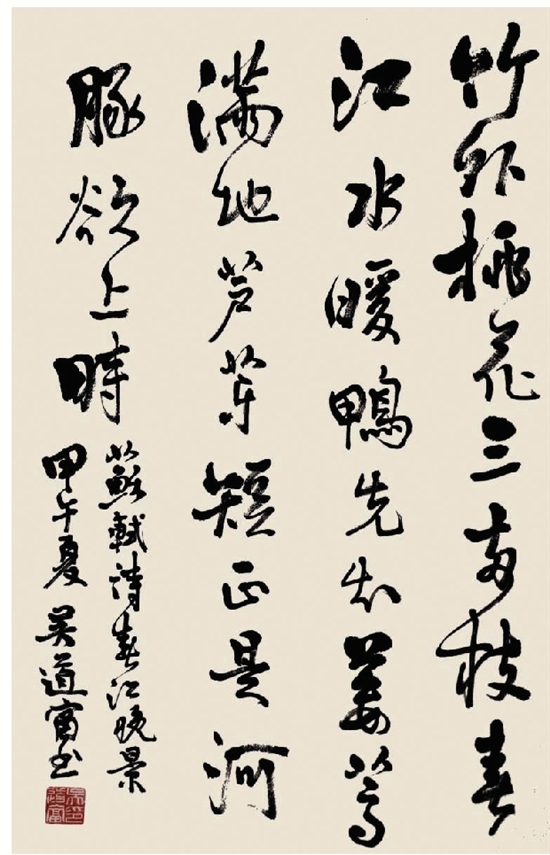 竹外桃花三两枝春
江水暖鴨先知蒌蒿
满地芦芽短正是河
豚欲上時
蘇軾詩春江晓景
甲午夏 吴道富书